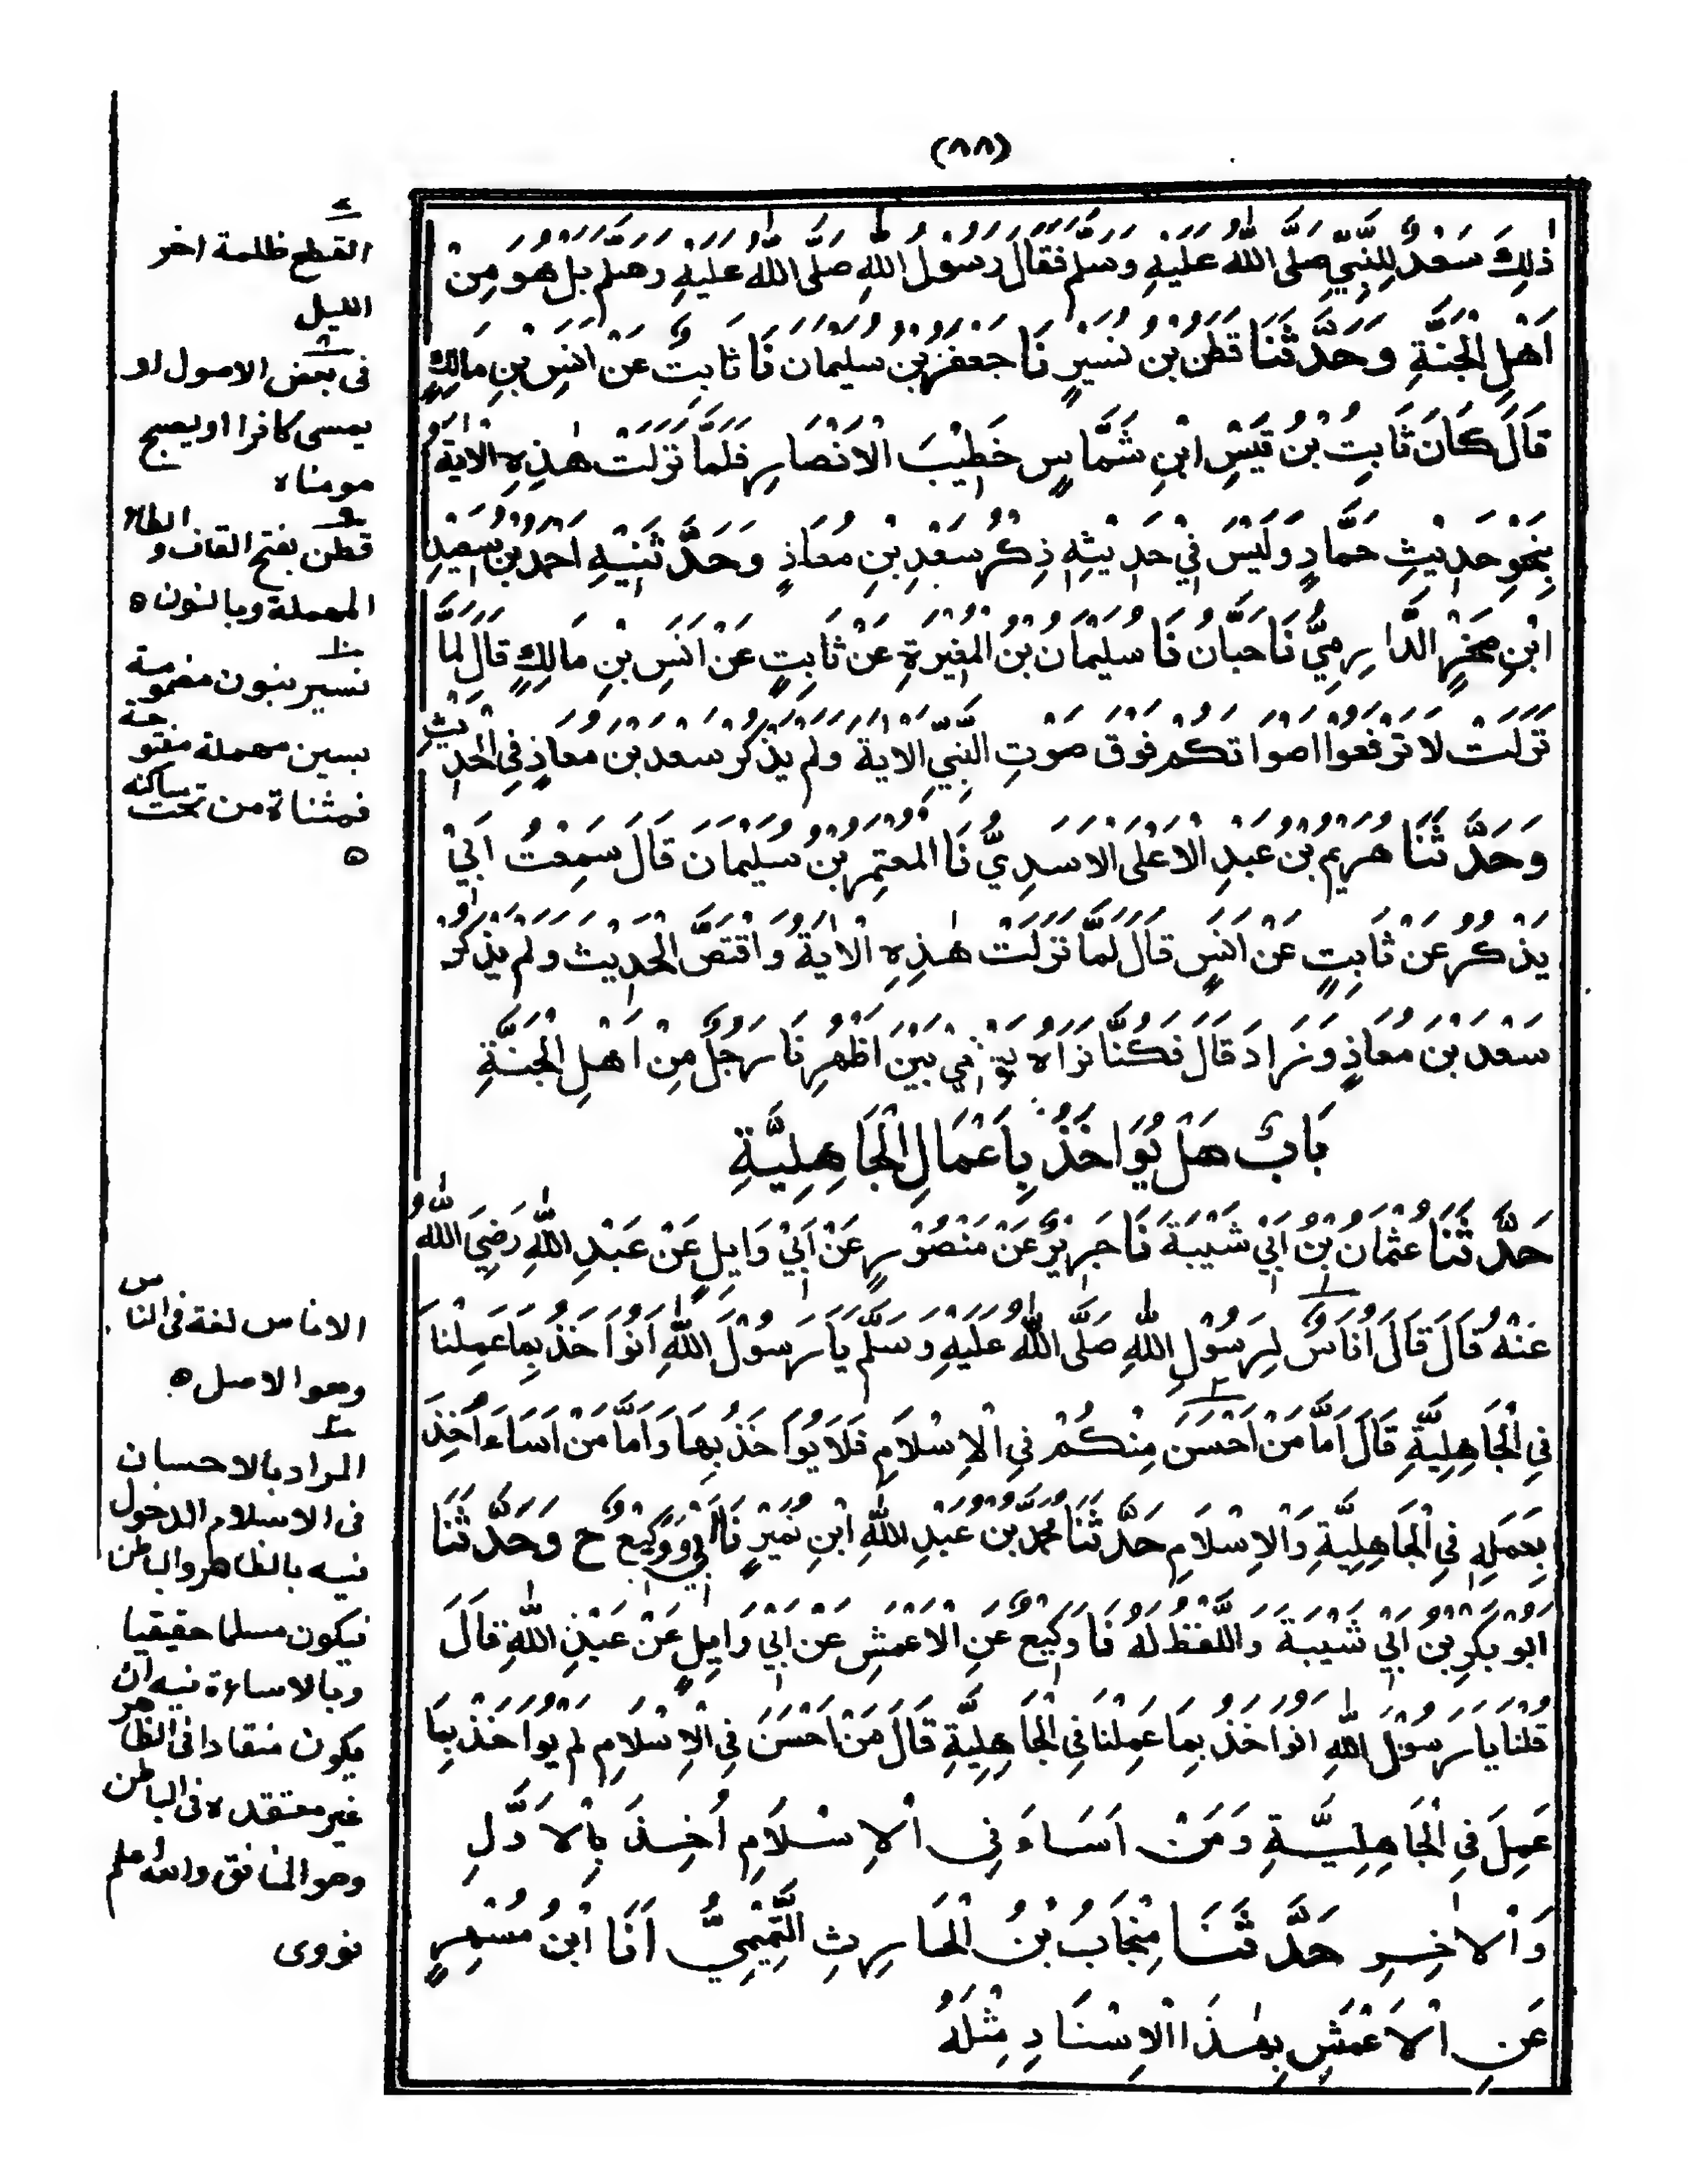 (٨٨)
ذٰلِكَ سَعْدٌ لِلنَّبِيِّ صَلَّى اللّٰهُ عَلَيْهِ وَسَلَّمَ فَقَالَ رَسُولُ اللّٰهِ صَلَّى اللّٰهُ عَلَيْهِ وَسَلَّمَ بَلْ هُوَ مِنْ
اَهْلِ الْجَنَّةِ وَحَدَّثَنَا قَطَنُ بْنُ نُسَيْرٍ نَا جَعْفَرُ بْنُ سُلَيْمَانَ نَا ثَابِتٌ عَنْ اَنَسِ بْنِ مَالِكٍ
قَالَ كَانَ ثَابِتُ بْنُ قَيْسِ ابْنِ شَمَّاسٍ خَطِيْبَ الْاَنْصَارِ فَلَمَّا نَزَلَتْ هٰذِهِ الْاٰيَةُ
بِنَحْوِ حَدِيْثِ حَمَّادٍ وَلَيْسَ فِيْ حَدِيْثِهِ ذِكْرُ سَعْدِ بْنِ مُعَاذٍ وَحَدَّثَنِيْهِ اَحْمَدُ بْنُ سَعِيْدِ
ابْنِ صَخْرٍ الدَّارِمِيُّ نَا حَبَّانُ نَا سُلَيْمَانُ بْنُ الْمُغِيْرَةِ عَنْ ثَابِتٍ عَنْ اَنَسِ بْنِ مَالِكٍ قَالَ لَمَّا
نَزَلَتْ لَا تَرْفَعُوْا اَصْوَاتَكُمْ فَوْقَ صَوْتِ النَّبِيِّ الْاٰيَةَ وَلَمْ يَذْكُرْ سَعْدَ بْنَ مُعَاذٍ فِي الْحَدِيْثِ
وَحَدَّثَنَا هُرَيْمُ بْنُ عَبْدِ الْاَعْلَى الْاَسَدِيُّ نَا الْمُعْتَمِرُ بْنُ سُلَيْمَانَ قَالَ سَمِعْتُ اَبِيْ
يَذْكُرُ عَنْ ثَابِتٍ عَنْ اَنَسٍ قَالَ لَمَّا نَزَلَتْ هٰذِهِ الْاٰيَةُ وَاقْتَصَّ الْحَدِيْثَ وَلَمْ يَذْكُرْ
سَعْدَ بْنَ مُعَاذٍ وَزَادَ قَالَ فَكُنَّا نَرَاهُ يَمْشِيْ بَيْنَ اَظْهُرِنَا رَجُلٌ مِنْ اَهْلِ الْجَنَّةِ
بَابٌ هَلْ يُوَاخَذُ بِاَعْمَالِ الْجَاهِلِيَّةِ
حَدَّثَنَا عُثْمَانُ بْنُ اَبِيْ شَيْبَةَ نَا جَرِيْرٌ عَنْ مَنْصُوْرٍ عَنْ اَبِيْ وَايِلٍ عَنْ عَبْدِ اللّٰهِ رَضِيَ اللّٰهُ
عَنْهُ قَالَ قَالَ اُنَاسٌ لِرَسُوْلِ اللّٰهِ صَلَّى اللّٰهُ عَلَيْهِ وَسَلَّمَ يَا رَسُوْلَ اللّٰهِ اَنُوَاخَذُ بِمَا عَمِلْنَا
فِي الْجَاهِلِيَّةِ قَالَ اَمَّا مَنْ اَحْسَنَ مِنْكُمْ فِي الْاِسْلَامِ فَلَا يُوَاخَذُ بِهَا وَاَمَّا مَنْ اَسَاءَ اُخِذَ
بِعَمَلِهِ فِي الْجَاهِلِيَّةِ وَالْاِسْلَامِ حَدَّثَنَا مُحَمَّدُ بْنُ عَبْدِ اللّٰهِ ابْنِ نُمَيْرٍ نَا اَبِيْ وَوَكِيْعٌ ح وَحَدَّثَنَا
اَبُوْ بَكْرِ بْنُ اَبِيْ شَيْبَةَ وَاللَّفْظُ لَهُ نَا وَكِيْعٌ عَنِ الْاَعْمَشِ عَنْ اَبِيْ وَايِلٍ عَنْ عَبْدِ اللّٰهِ قَالَ
قُلْنَا يَا رَسُوْلَ اللّٰهِ اَنُوَاخَذُ بِمَا عَمِلْنَا فِي الْجَاهِلِيَّةِ قَالَ مَنْ اَحْسَنَ فِي الْاِسْلَامِ لَمْ يُوَاخَذْ بِمَا
عَمِلَ فِي الْجَاهِلِيَّةِ وَمَنْ اَسَاءَ فِي الْاِسْلَامِ اُخِذَ بِالْاَوَّلِ
وَالْاٰخِرِ حَدَّثَنَا مِنْجَابُ بْنُ الْحَارِثِ التَّمِيْمِيُّ اَنَا ابْنُ مُسْهِرٍ
عَنِ الْاَعْمَشِ بِهٰذَا الْاِسْنَادِ مِثْلَهُ
القطع ظلمة اخر
الليل
٨
فى بعض الاصول او
يمسى كافرا او يصبح
مومنا ه
٩
قطن بفتح القاف و الطاء
المهملة وبالنون ه
١٠
نسير بنون مضمومة
بسين مهملة مفتوحة
فمثناة من تحت ساكنه
ه
الاناس لغة فى الناس
وهو الاصل ه
٢
المراد بالاحسان
فى الاسلام الدخول
فيه بالظاهر والباطن
فيكون مسلما حقيقيا
وبالاساءة فيه ان
يكون منقادا فى الظاهر
غير معتقد ه فى الباطن
وهو المنافق والله اعلم
نووى